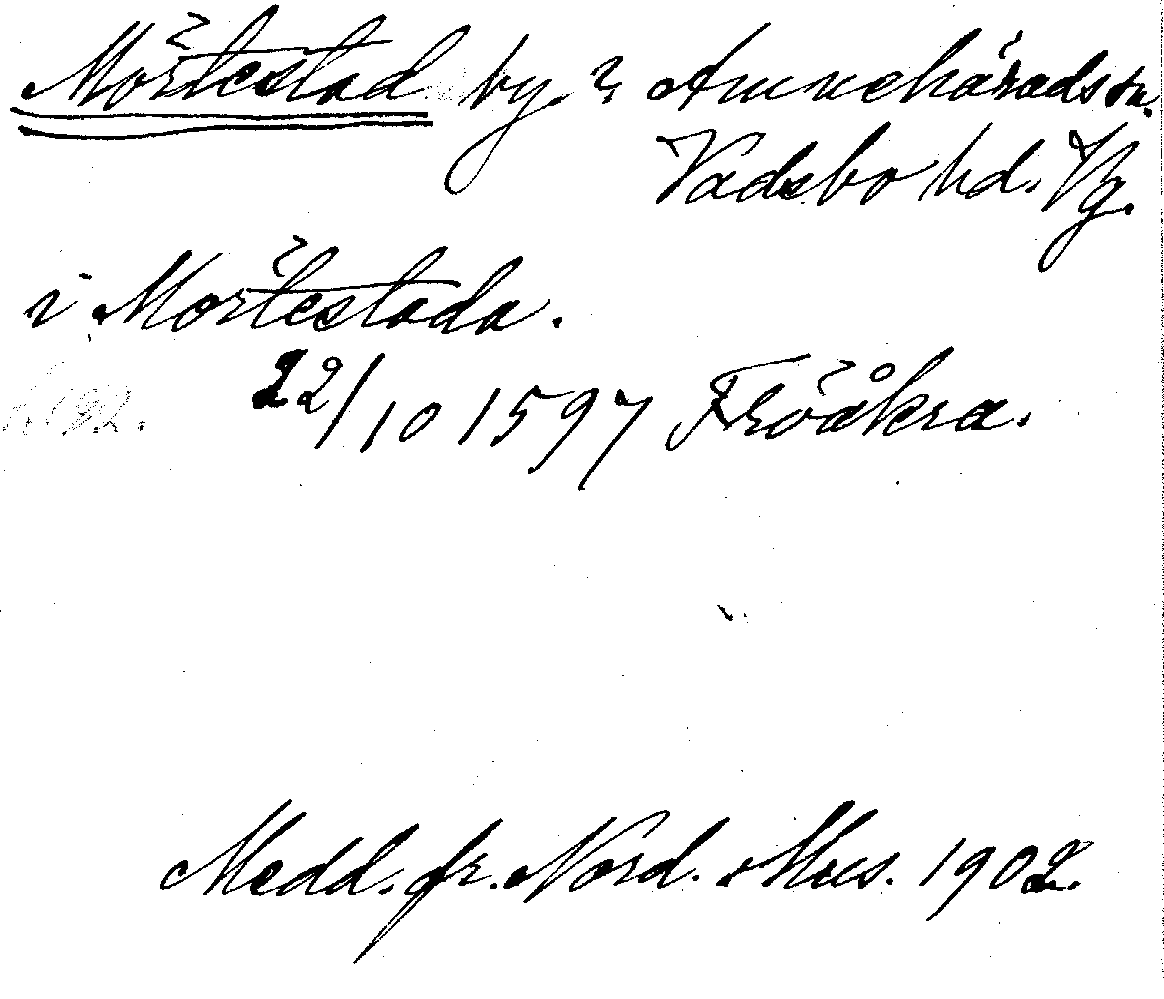 Mörtestad by. i Amnehärads sn.
Vadsbo hd. Vg.
i Mörtestada.
22/10 1597 Fröåkra.
Medd. fr. Nord. Mus. 1902.